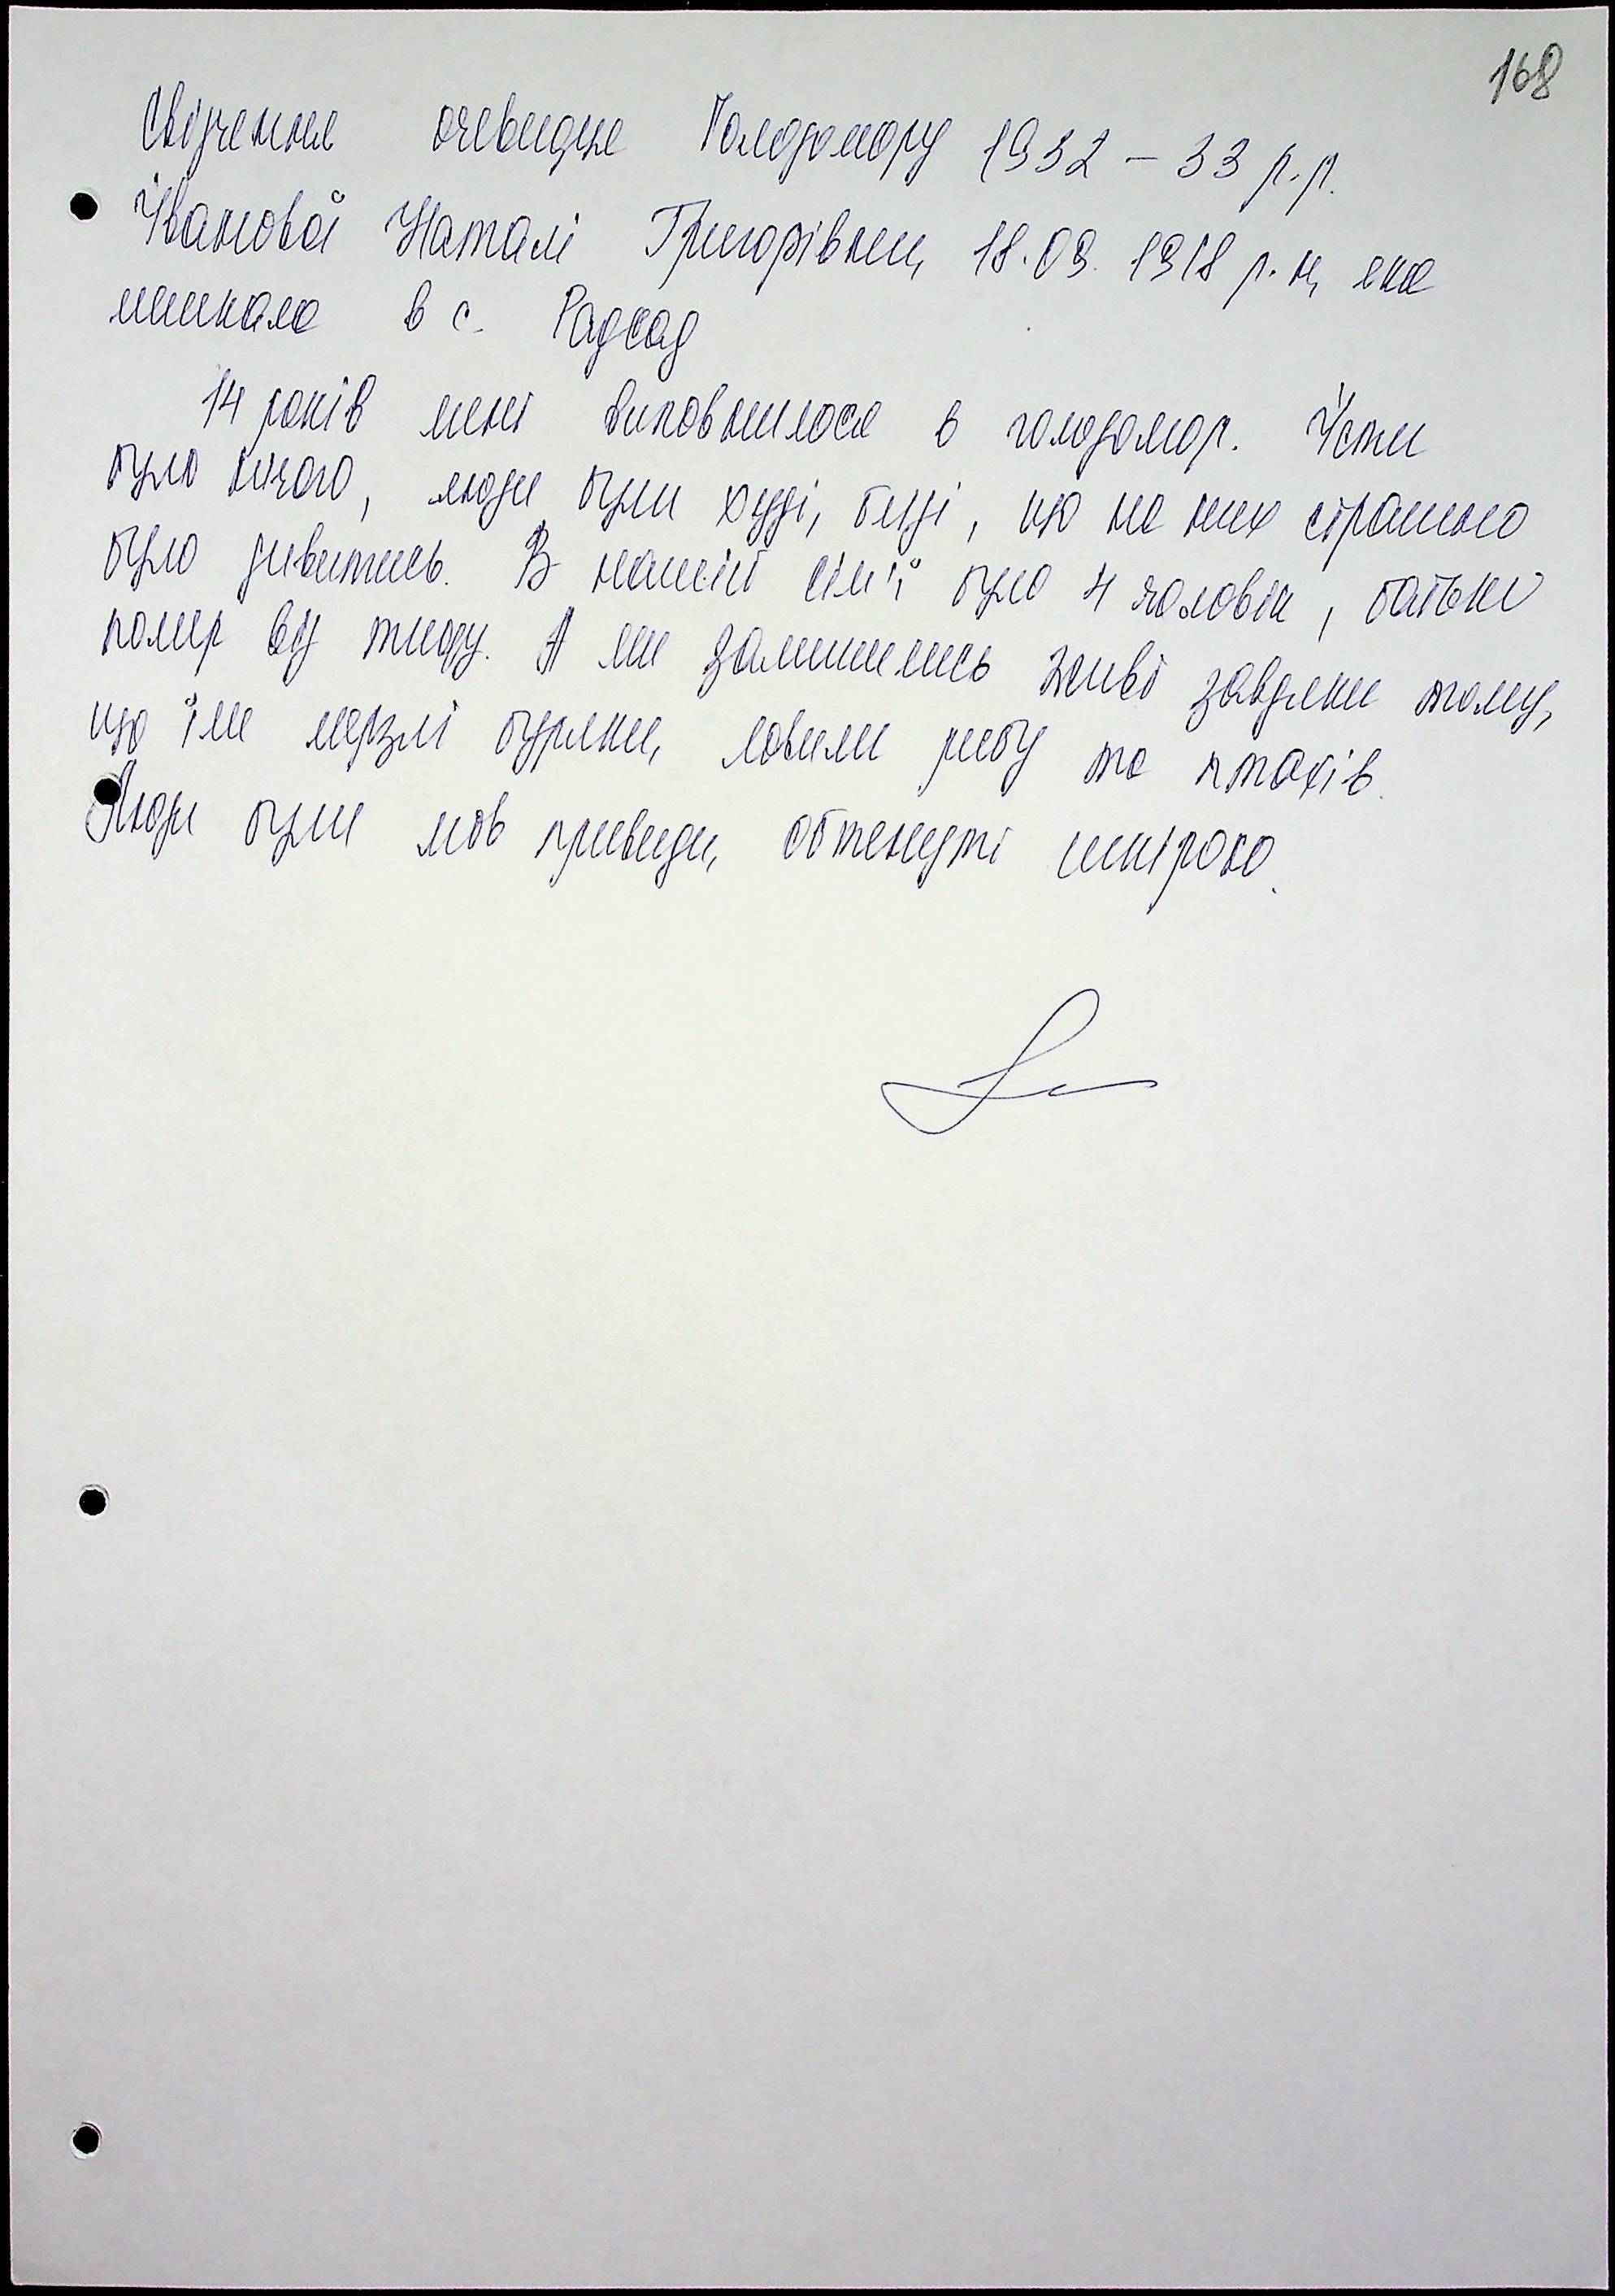 168
Свідчення очевидця Голодомору 1932 – 33 р.р.
Іванової Наталі Григорівни, 18.09.1918 р.н, яка
мешкала в с. Радсад
14 років мені виповнилося в голодомор. Їсти
було нічого, люди були худі, бліді, що на них страшно
було дивитись. В нашій сім'ї було 4 чоловік, батько
помер від тифу. А ми залишились живі завдяки тому,
що їли мерзлі буряки, ловили рибу та птахів.
Люди були мов привиди, обтянуті шкірою.